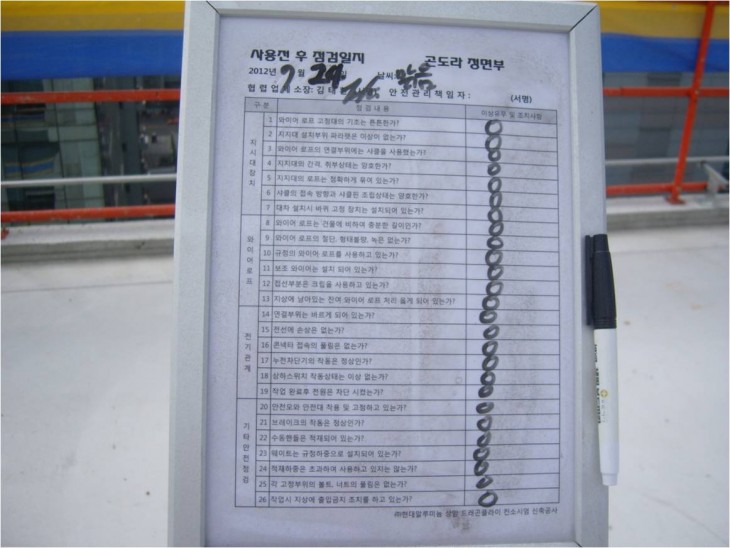 사용전 후 점검일지 곤도라 정면부
2012년 7월 24일 날씨: 맑음
협력업체소장: 김태 안전관리책임자: (서명)
구분 점검내용 이상유무 및 조치사항
지지대장치
1 와이어 로프 고정대의 기초는 튼튼한가?
2 지지대 설치부위 파라펫은 이상이 없는가?
3 와이어 로프의 연결부위에는 샤클을 사용했는가?
4 지지대의 간격, 취부상태는 양호한가?
5 지지대의 로프는 정확하게 묶여 있는가?
6 샤클의 접속 방향과 샤클핀 조립상태는 양호한가?
7 대차 설치시 바퀴 고정 장치는 설치되어 있는가?
와이어로프
8 와이어 로프는 건물에 비하여 충분한 길이인가?
9 와이어 로프의 절단, 형태불량, 녹은 없는가?
10 규정의 와이어 로프를 사용하고 있는가?
11 보조 와이어는 설치 되어 있는가?
12 접선부분은 크립을 사용하고 있는가?
13 지상에 남아있는 잔여 와이어 로프 처리 옳게 되어 있는가?
전기관계
14 연결부위는 바르게 되어 있는가?
15 전선에 손상은 없는가?
16 콘넥타 접속의 풀림은 없는가?
17 누전차단기의 작동은 정상인가?
18 상하스위치 작동상태는 이상 없는가?
19 작업 완료후 전원은 차단 시켰는가?
기타안전점검
20 안전모와 안전대 착용 및 고정하고 있는가?
21 브레이크의 작동은 정상인가?
22 수동핸들은 적재되어 있는가?
23 웨이트는 규정하중으로 설치되어 있는가?
24 적재하중은 초과하여 사용하고 있지는 않는가?
25 각 고정부위의 볼트, 너트의 풀림은 없는가?
26 작업시 지상에 출입금지 조치를 하고 있는가?
㈜현대알루미늄 상암 드래곤플라이 컨소시엄 신축공사